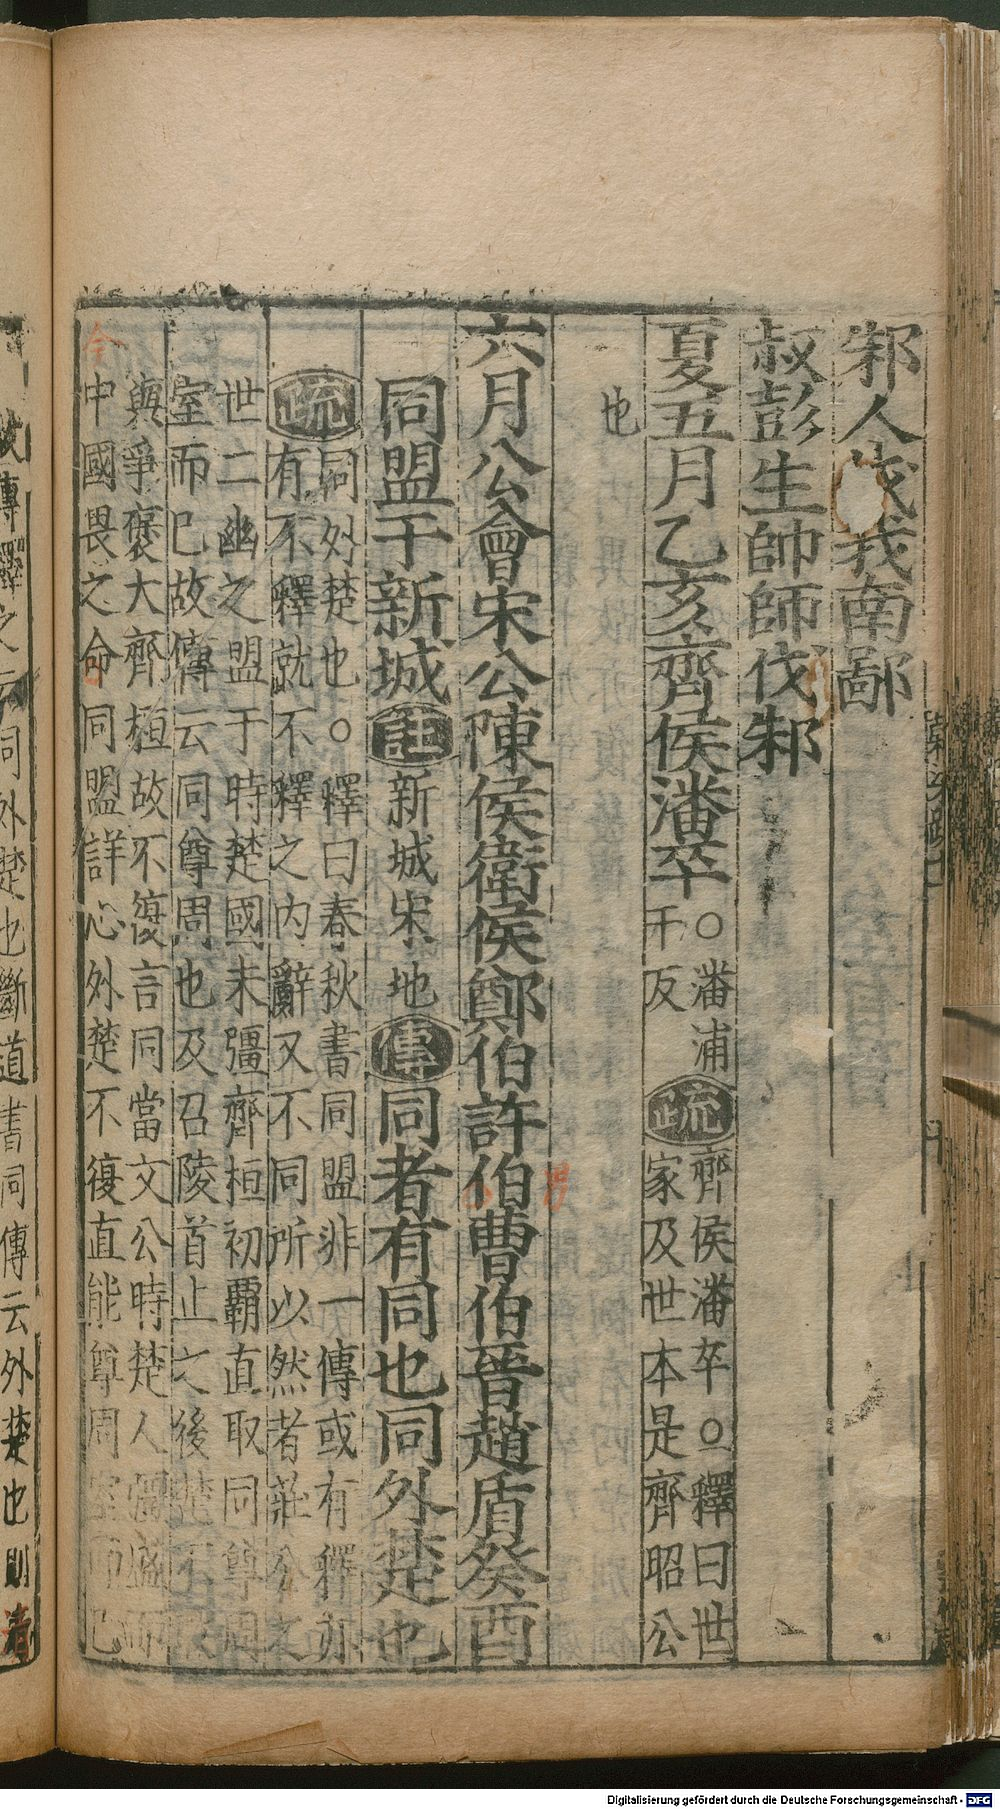 邾人伐我南鄙
叔彭生帥師伐邾
夏五月乙亥齊侯潘卒○潘浦
干反
疏
齊侯潘卒○釋曰世
家及世本是齊昭公
也
六月公會宋公陳侯衛侯鄭伯許伯曹伯晉趙盾癸酉
男
同盟于新城註新城宋地傳同者有同也同外楚也
疏
同外楚也○釋曰春秋書同盟非一傳或有釋亦
有不釋就不釋之内辭又不同所以然者莊公之
世二幽之盟于時楚國未彊齊桓初覇直取同尊周
室而已故傳云同尊周也及召陵首止之後楚不敢
與爭褒大齊桓故不復言同當文公時楚人彊盛而
中國畏之命同盟詳心外楚不復直能尊周室而已
今
傳釋之云同外楚也斷道書同傳云外楚也則
清
Digitalisierung gefördert durch die Deutsche Forschungsgemeinschaft - DFG